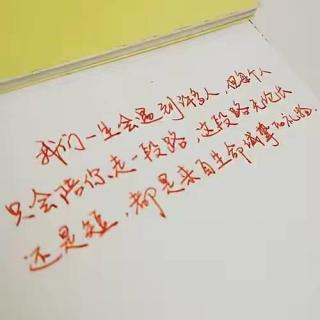 我们一生会遇到许多人，但每个人
只会陪你走一段路，这段路无论长
还是短，都是来自生命馈赠的礼物